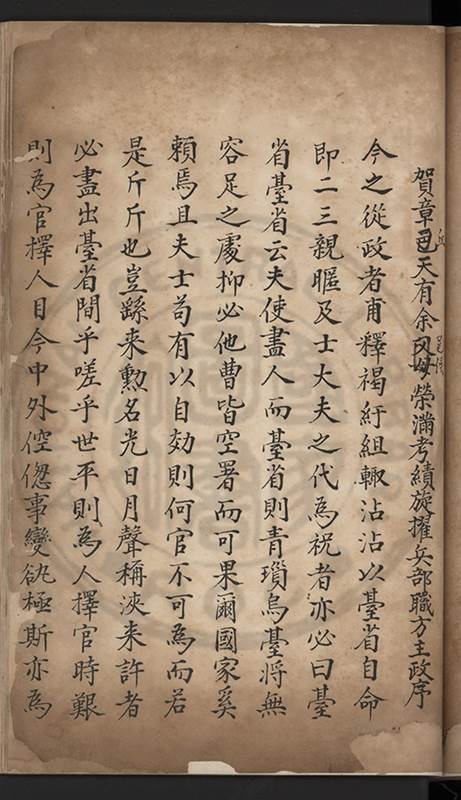 賀章邑天有余父母榮滿考績旋擢兵部職方主政序
今之從政者甫釋褐紆組輙沾沾以臺省自命
即二三親暱及士大夫之代為祝者亦必曰臺
省臺省云夫使盡人而臺省則青瑣烏臺將無
容足之處抑必他曹皆空署而可果爾國家奚
賴焉且夫士苟有以自効則何官不可為而若
是斤斤也豈繇来勲名光日月聲稱浹来許者
必盡出臺省間乎嗟乎世平則為人擇官時艱
則為官擇人目今中外倥偬事變孔極斯亦為